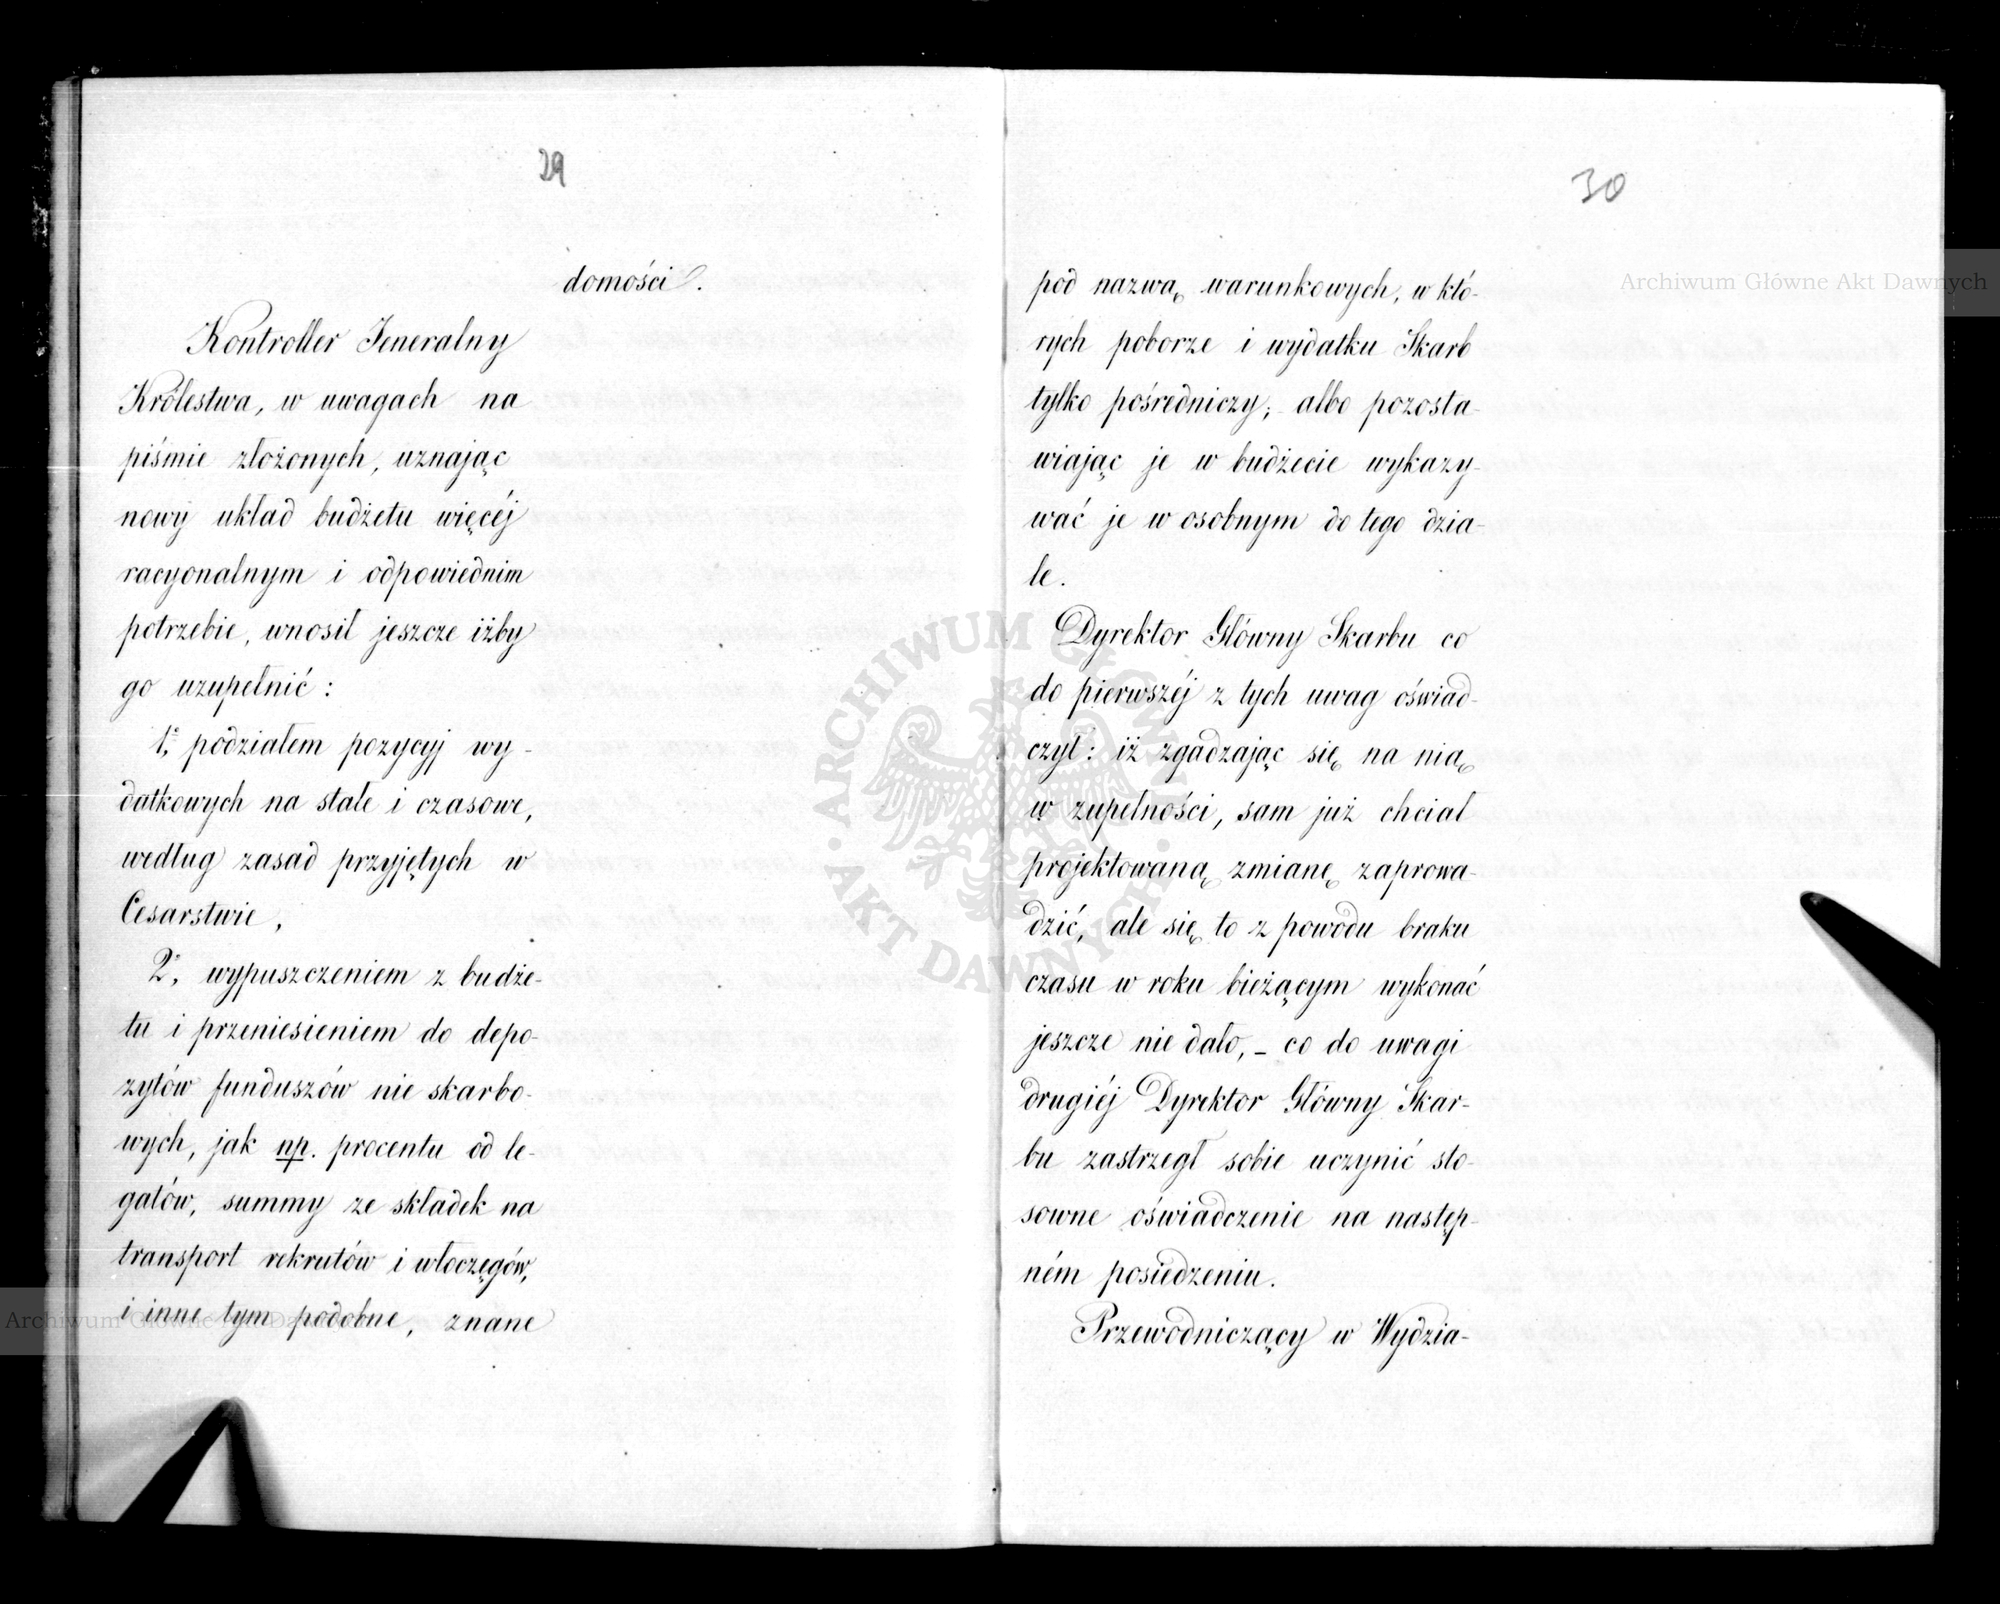 29
domości.
Kontroller Jeneralny
Królestwa, w uwagach na
piśmie złożonych, uznając
nowy układ budżetu więcéj
racyonalnym i odpowiednim
potrzebie, wnosił jeszcze iżby
go uzupełnić:
1º, podziałem pozycyj wy-
datkowych na stałe i czasowe,
według zasad przyjętych w
Cesarstwie,
2º, wypuszczeniem z budże-
tu i przeniesieniem do depo-
zytów funduszów nie skarbo-
wych, jak np. procentu od le-
gatów, summy ze składek na
transport rekrutów i włóczęgów,
i inne tym podobne, znane
30
pod nazwą warunkowych, w któ-
rych poborze i wydatku Skarb
tylko pośredniczy; albo pozosta-
wiając je w budżecie wykazy-
wać je w osobnym do tego dzia-
le.
Dyrektor Główny Skarbu co
do pierwszéj z tych uwag oświad-
czył: iż zgadzając się na nią
w zupełności, sam już chciał
projektowaną zmianę zaprowa-
dzić, ale się to z powodu braku
czasu w roku bieżącym wykonać
jeszcze nie dało, – co do uwagi
drugiéj Dyrektor Główny Skar-
bu zastrzegł sobie uczynić sto-
sowne oświadczenie na następ-
ném posiedzeniu.
Przewodniczący w Wydzia-
Archiwum Główne Akt Dawnych
Archiwum Główne Akt Dawnych
ARCHIWUM GŁÓWNE · AKT DAWNYCH ·